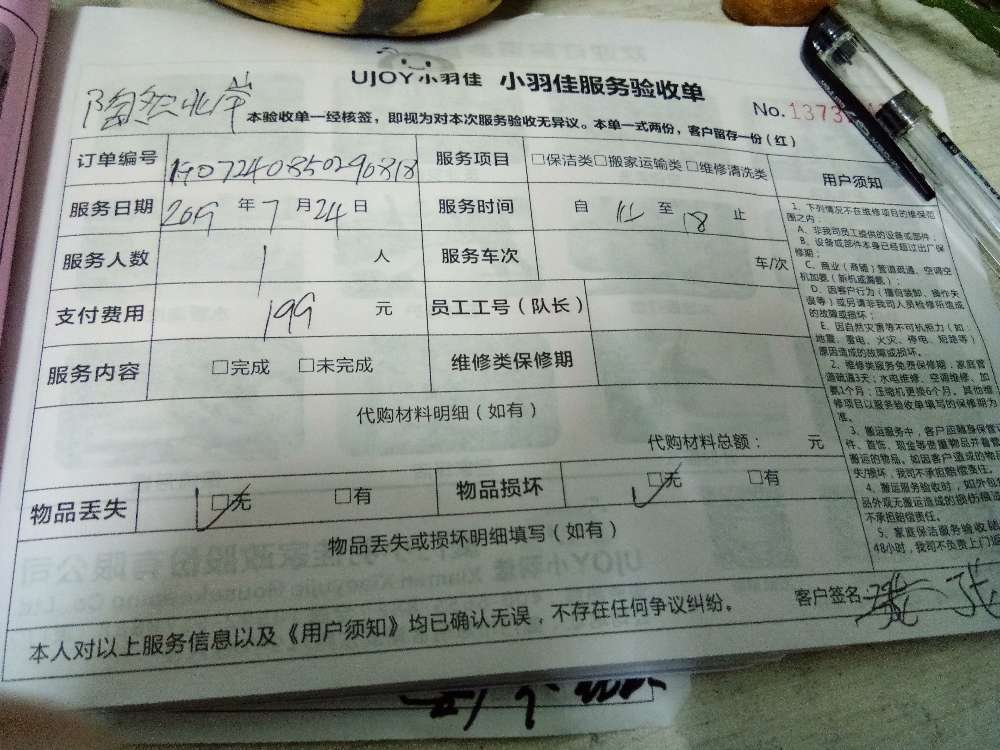 UJOY小羽佳 小羽佳服务验收单
陶然北岸
No.1373
本验收单一经核签，即视为对本次服务验收无异议。本单一式两份，客户留存一份（红）
订单编号 1907240850296818 服务项目 □保洁类□搬家运输类□维修清洗类
服务日期 2019年7月24日 服务时间 自 至18止
服务人数 1人 服务车次 车/次
支付费用 199元 员工工号（队长）
服务内容 □完成 □未完成 维修类保修期
代购材料明细（如有）
代购材料总额： 元
物品丢失 ☑无 □有 物品损坏 ☑无 □有
物品丢失或损坏明细填写（如有）
客户签名
本人对以上服务信息以及《用户须知》均已确认无误，不存在任何争议纠纷。
用户须知
1、下列情况不在维修项目的维保范
围之内：
A、非我司员工提供的设备或部件；
B、设备或部件本身已经超过出厂保
修期；
C、商业（商铺）管道疏通、空调空
机加氨（新机或漏氨）；
D、因客户行为（擅自装卸、操作失
误等）或另请非我司人员检修所造成
的故障或损坏；
E、因自然灾害等不可抗拒力（如：
地震、雷电、火灾、停电、短路等）
原因造成的故障或损坏。
2、维修类服务免费保修期，家庭管
道疏通3天；水电维修、空调维修、加
氨1个月；压缩机更换6个月。其他维
修项目以服务验收单填写的保修期为
准。
3、搬运服务中，客户应随身保管证
件、首饰、现金等贵重物品并看管
搬运的物品。如因客户造成的物品
失/损坏，我司不承担赔偿责任。
4、搬运服务验收时，如外包
品外观无搬运造成的损伤痕迹
不承担赔偿责任。
5、家庭保洁服务验收
48小时，我司不负责上门返